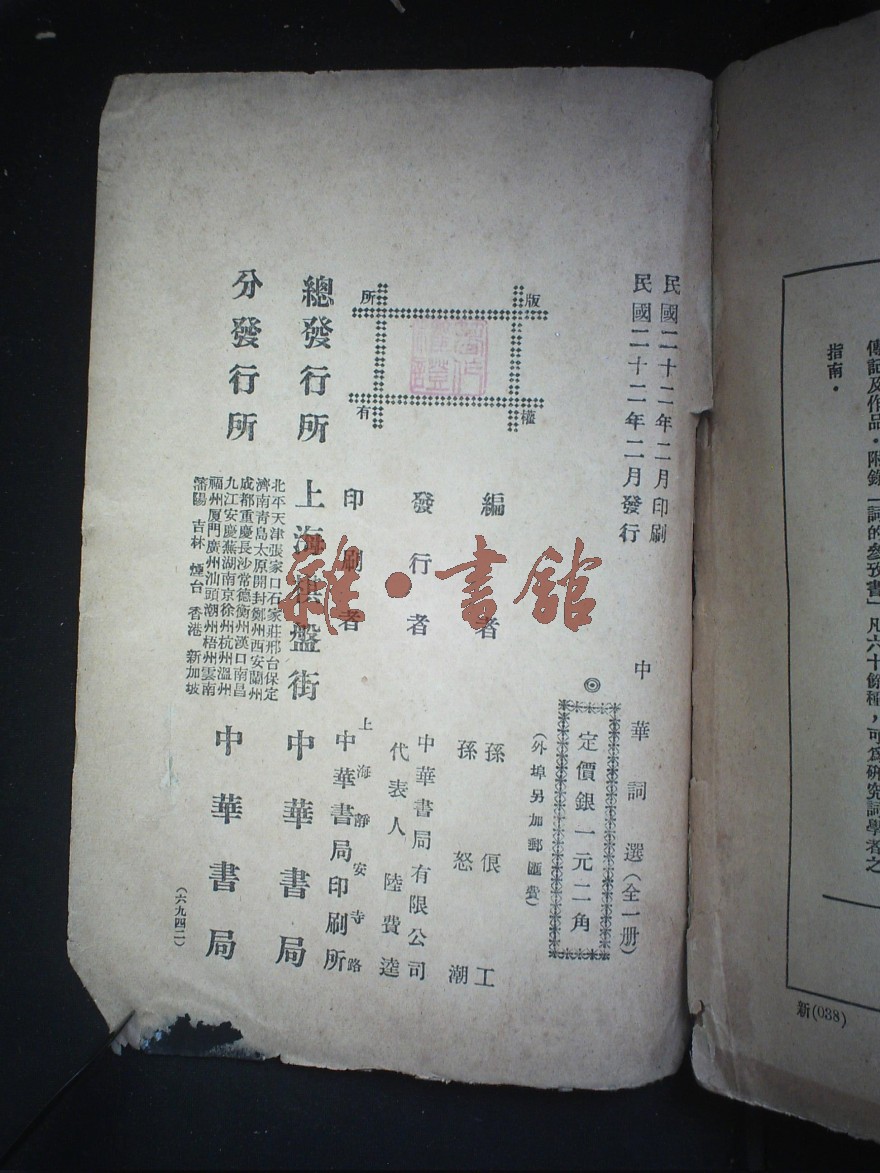 傳記及作品·附錄「詞的參攷書」凡六十餘種，可爲研究詞學者之
指南·
新(038)
民國二十二年二月印刷
民國二十二年二月發行
中華詞選（全一册）
◎定價銀一元二角
（外埠另加郵匯費）
版權所有
編者 孫俍工
孫怒潮
發行者 中華書局有限公司
代表人 陸費逵
印刷者 上海靜安寺路
中華書局印刷所
總發行所 上海棋盤街 中華書局
分發行所
北平天津張家口石家莊邢台保定
濟南青島太原開封鄭州西安蘭州
成都重慶長沙常德衡州漢口南昌
九江安慶蕪湖南京徐州杭州溫州
福州厦門廣州汕頭潮州梧州雲南
瀋陽 吉林 煙台 香港 新加坡
中華書局
（六九四二）
雜·書館